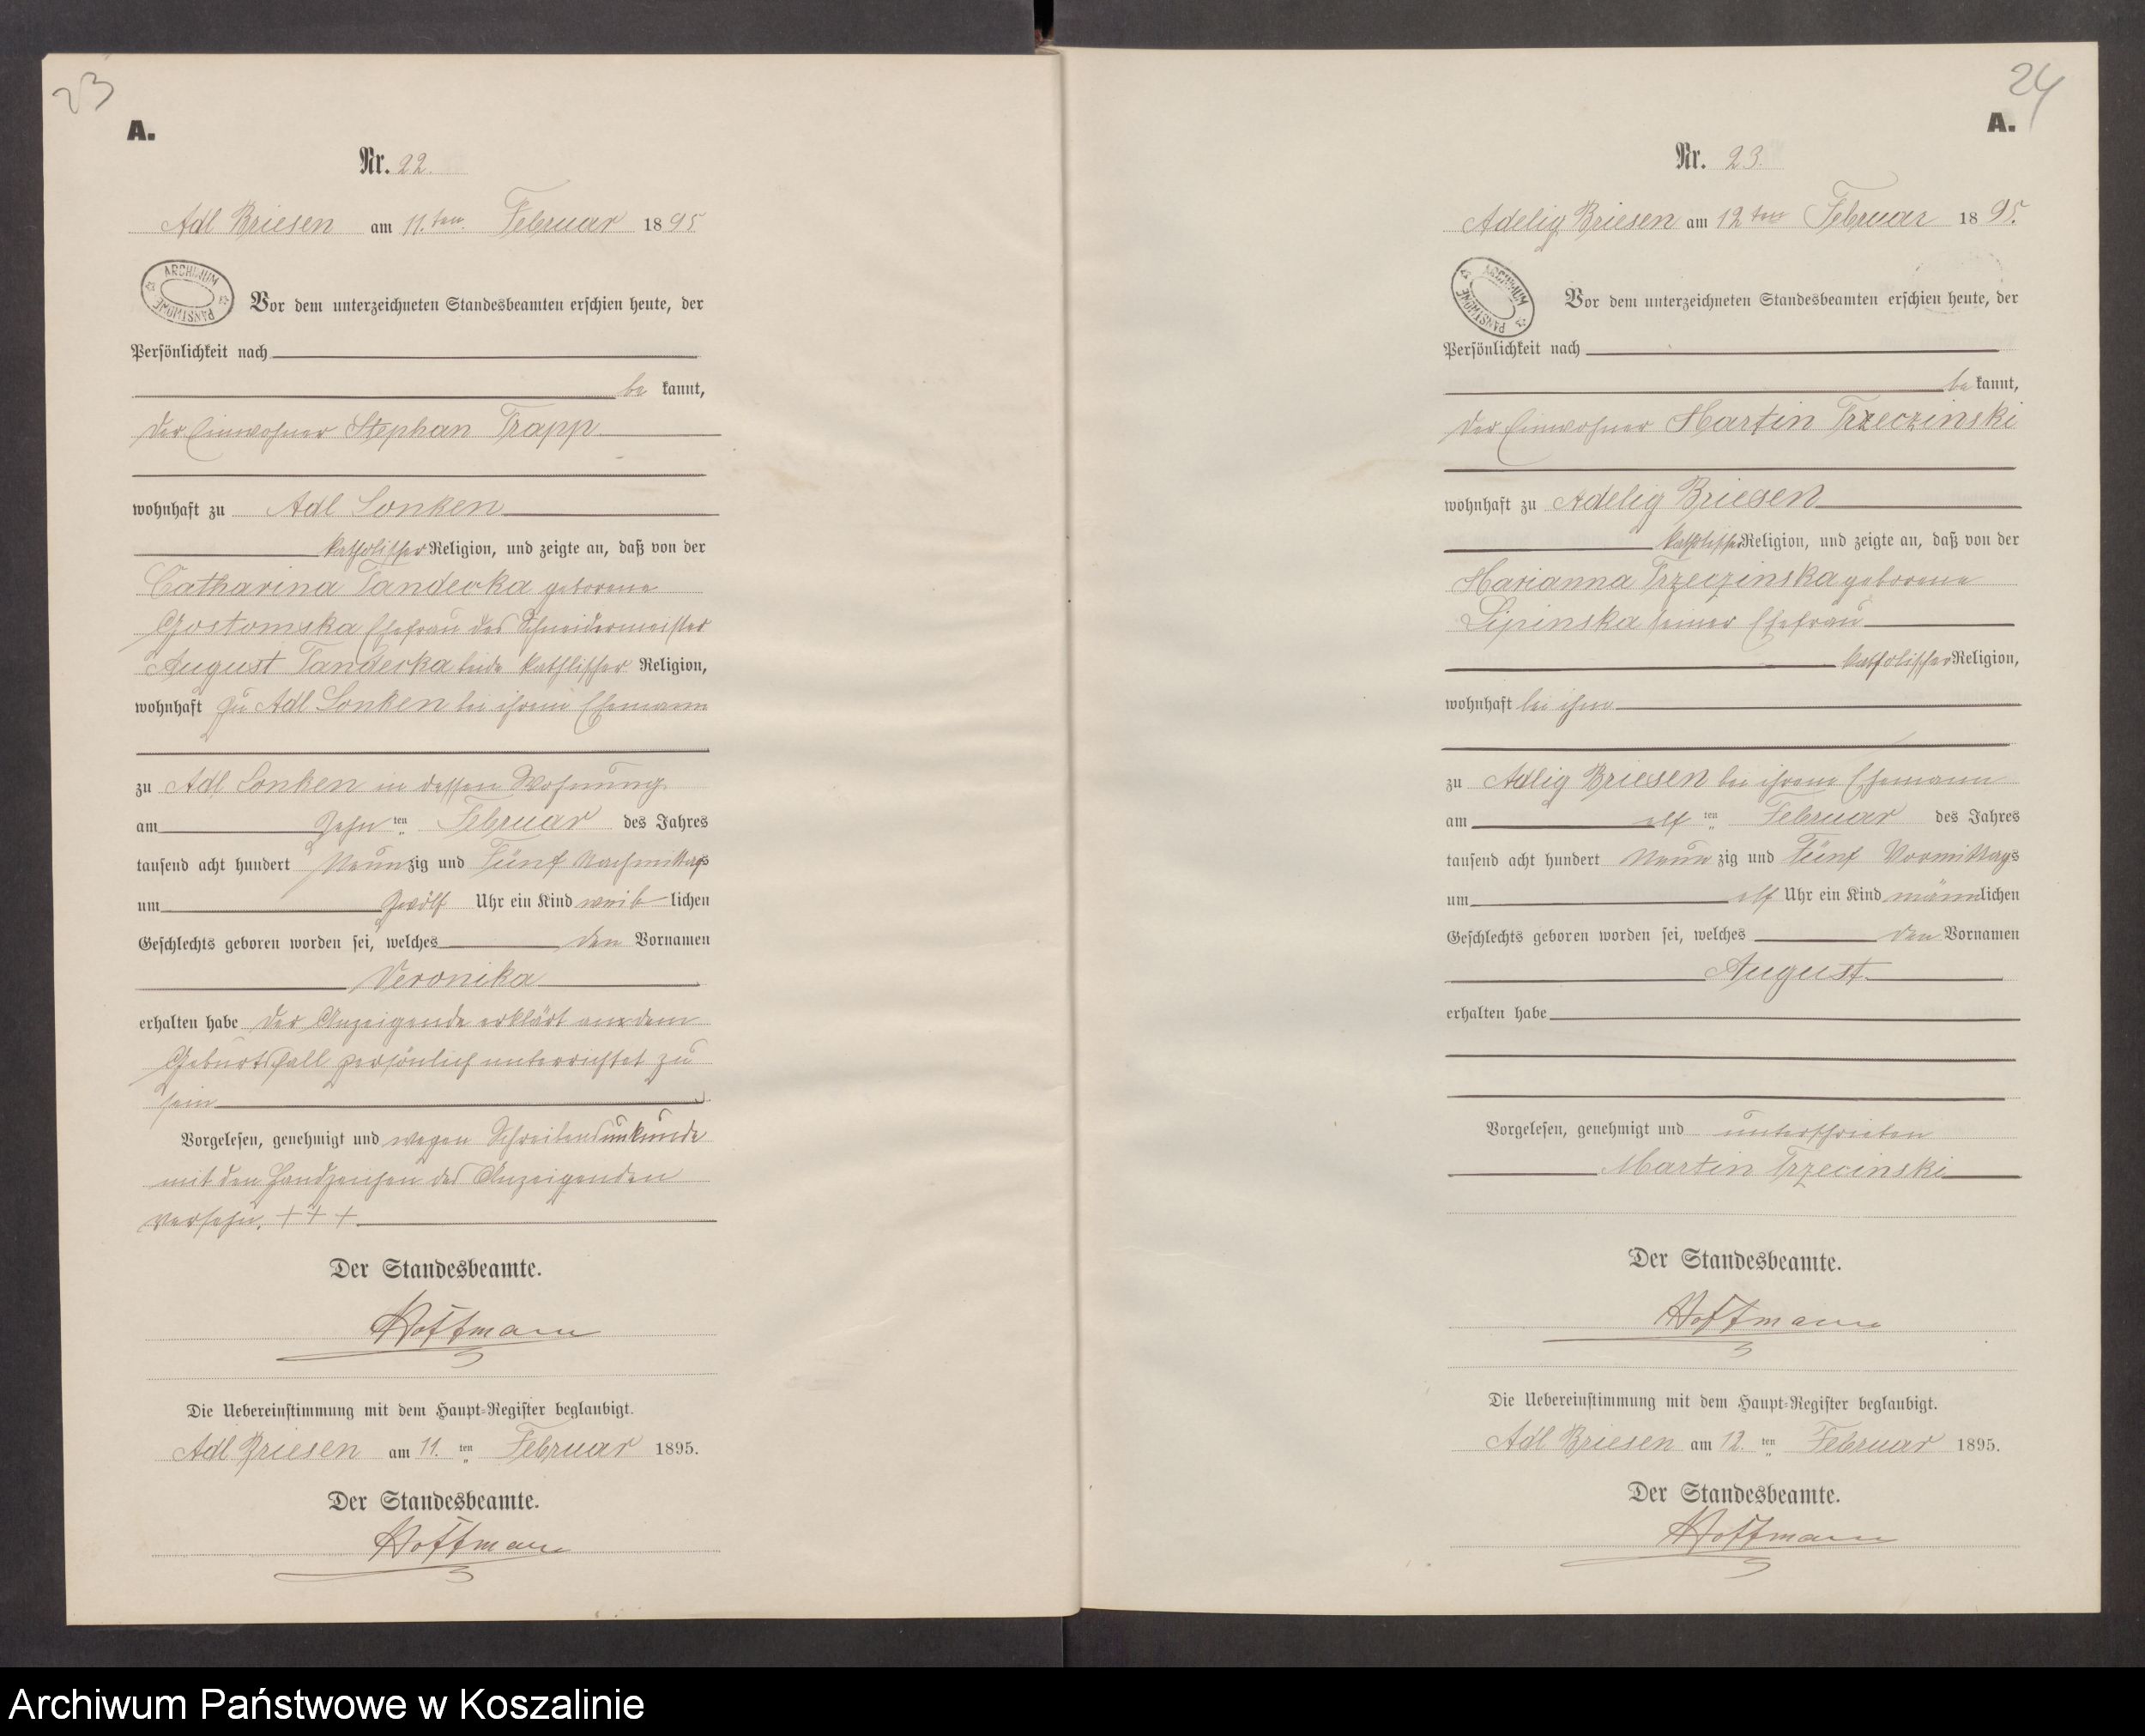 23
A.
Nr. 22.
Adl Briesen am 11. ten Februar 1895
ARCHIWUM PAŃSTWOWE
Vor dem unterzeichneten Standesbeamten erschien heute, der
Persönlichkeit nach
be kannt,
der Einwohner Stephan Trapp
wohnhaft zu Adl Lonken
katholischer Religion, und zeigte an, daß von der
Catharina Tandecka geborene
Gostomska Ehefrau des Schneidermeister
August Tandecka beide katholischer Religion,
wohnhaft zu Adl Lonken bei ihrem Ehemann
zu Adl Lonken in dessen Wohnung
am Zehn ten Februar des Jahres
tausend acht hundert Neunzig und Fünf Nachmittags
um Zwölf Uhr ein Kind weib lichen
Geschlechts geboren worden sei, welches den Vornamen
Veronika
erhalten habe Der Anzeigende erklärt aus dem
Geburtsfall persönlich unterrichtet zu
sein
Vorgelesen, genehmigt und wegen Schreibensunkunde
mit den Handzeichen des Anzeigenden
versehn. + + +
Der Standesbeamte.
Hoffmann
Die Uebereinstimmung mit dem Haupt-Register beglaubigt.
Adl Briesen am 11. ten Februar 1895.
Der Standesbeamte.
Hoffmann
24
A.
Nr. 23.
Adelig Briesen am 12 ten Februar 1895.
ARCHIWUM PAŃSTWOWE
Vor dem unterzeichneten Standesbeamten erschien heute, der
Persönlichkeit nach
be kannt,
der Einwohner Martin Trzeczinski
wohnhaft zu Adelig Briesen
katholischer Religion, und zeigte an, daß von der
Marianna Trzeczinska geborene
Lipinska seiner Ehefrau
katholischer Religion,
wohnhaft bei ihm
zu Adlig Briesen bei ihrem Ehemann
am elf ten Februar des Jahres
tausend acht hundert Neun zig und Fünf Vormittags
um elf Uhr ein Kind männlichen
Geschlechts geboren worden sei, welches den Vornamen
August
erhalten habe
Vorgelesen, genehmigt und unterschrieben
Martin Trzecinski
Der Standesbeamte.
Hoffmann
Die Uebereinstimmung mit dem Haupt-Register beglaubigt.
Adl Briesen am 12. ten Februar 1895.
Der Standesbeamte.
Hoffmann
Archiwum Państwowe w Koszalinie